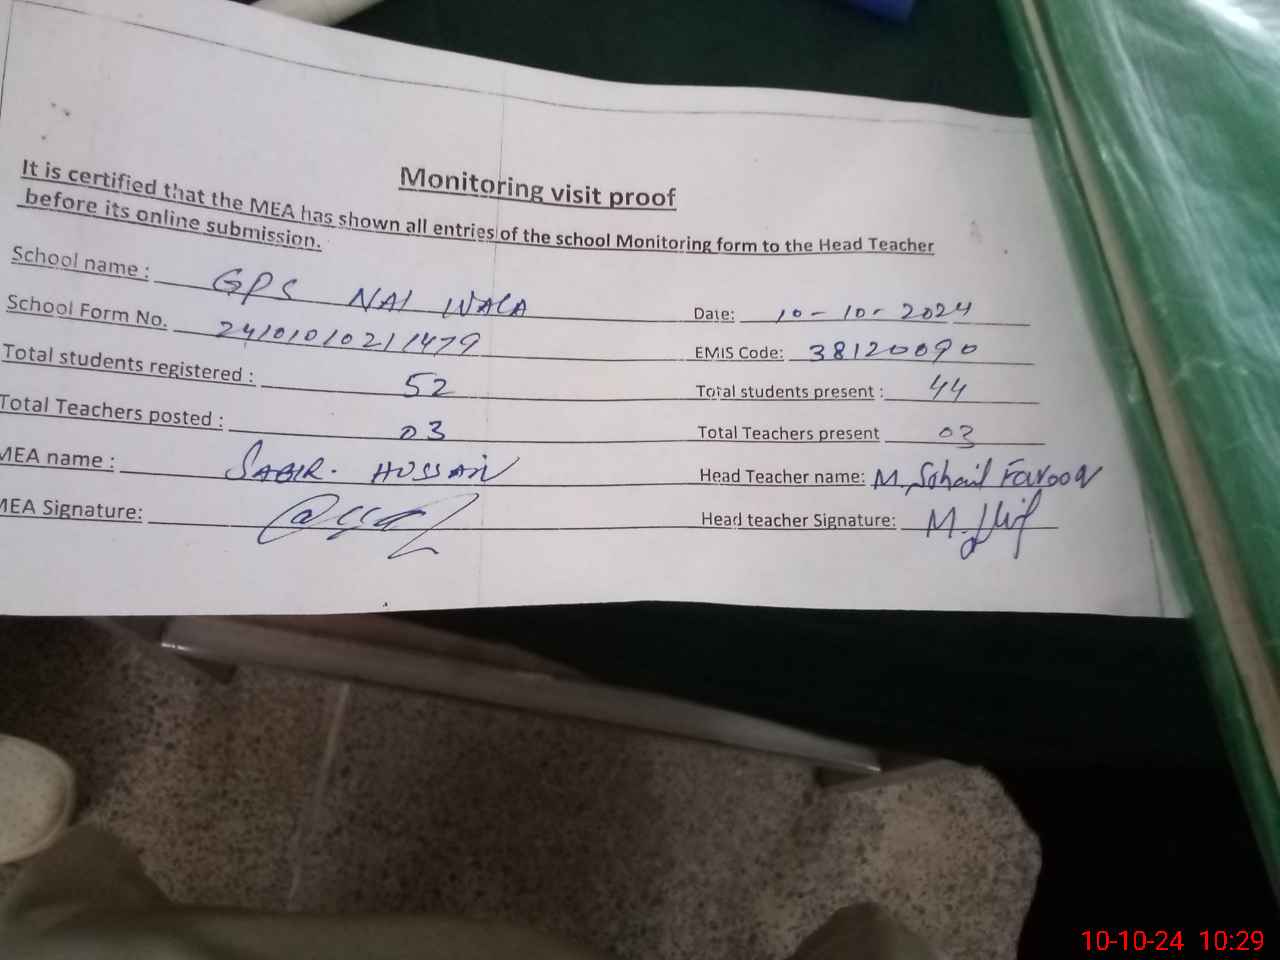 Monitoring visit proof
It is certified that the MEA has shown all entries of the school Monitoring form to the Head Teacher
before its online submission.
School name : GPS NAI WALA Date: 10-10-2024
School Form No. 24101010211479 EMIS Code: 38120090
Total students registered : 52 Total students present : 44
Total Teachers posted : 03 Total Teachers present 03
MEA name : SABIR. HUSSAIN Head Teacher name: M. Sohail Farooq
MEA Signature: Head teacher Signature: M.
10-10-24 10:29